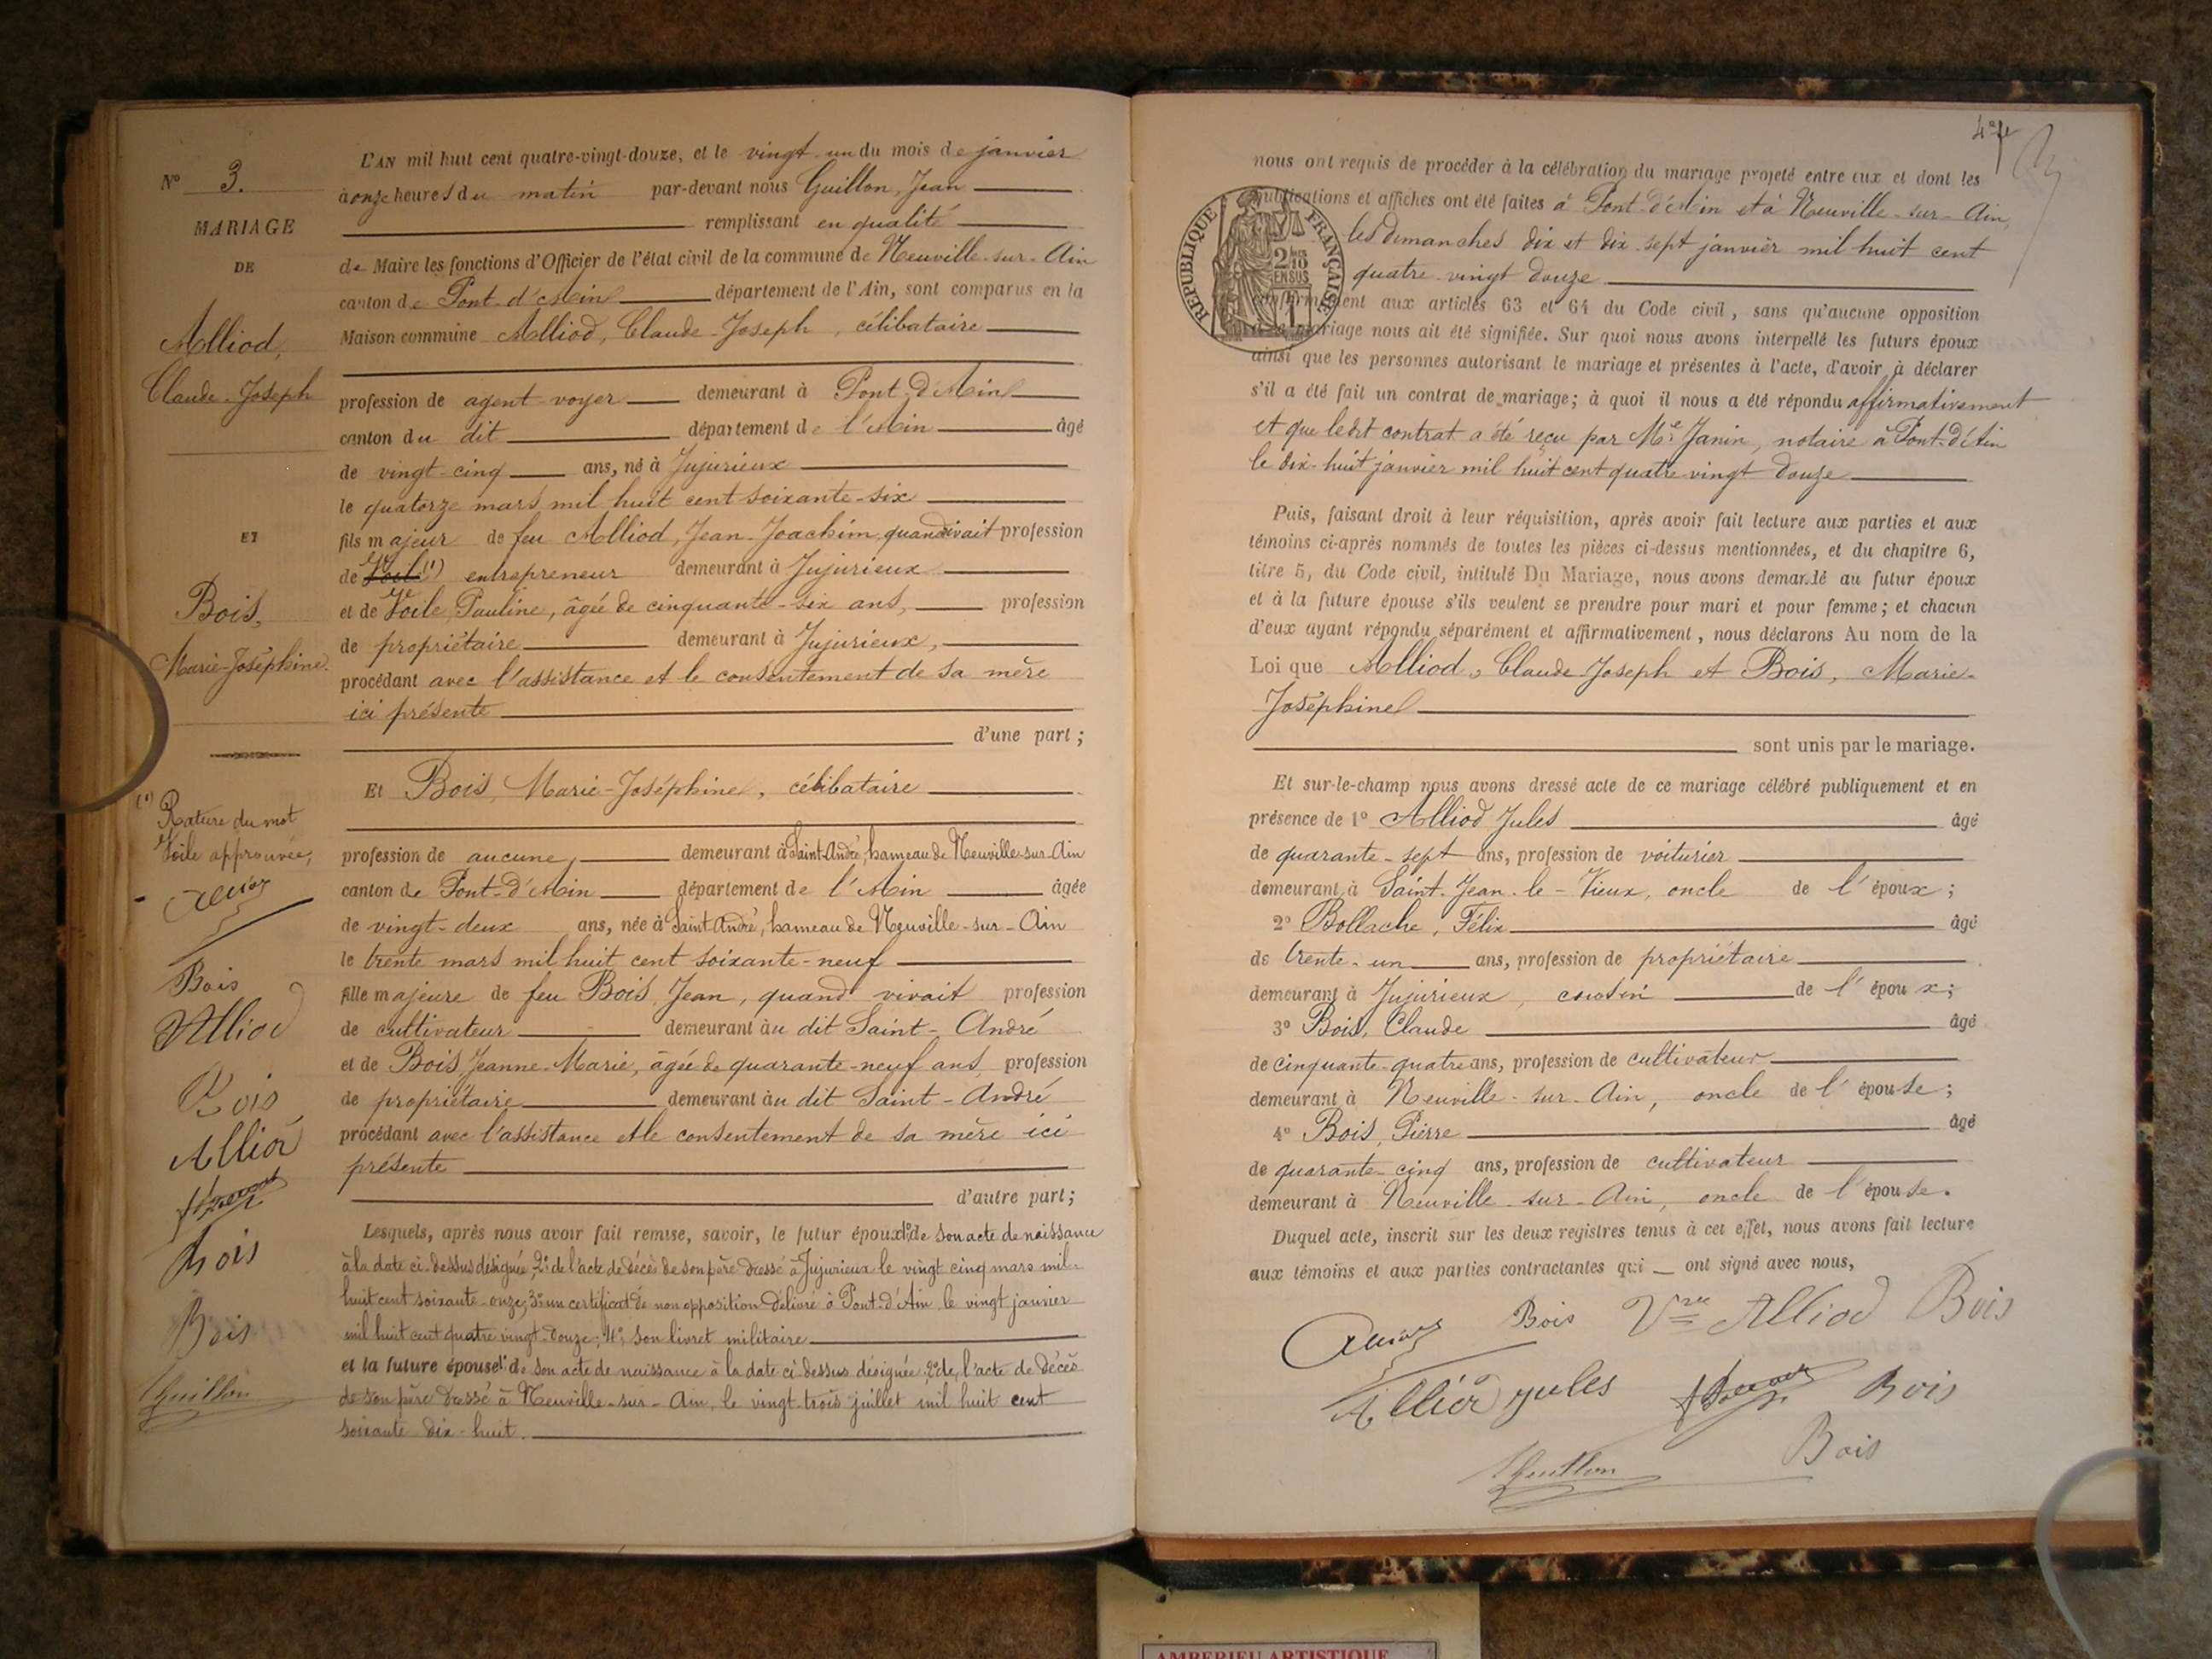 N° 3.
MARIAGE
DE
Alliod,
Claude-Joseph
ET
Bois,
Marie-Joséphine.
(1) Rature du mot
Voile approuvée,
Bois
Alliod
Bois
Alliod
Bois
Bois
Guillon
L'AN mil huit cent quatre-vingt-douze, et le vingt-un du mois de janvier
à onze heures du matin par-devant nous Guillon, Jean
remplissant en qualité
de Maire les fonctions d'Officier de l'état civil de la commune de Neuville-sur-Ain
canton de Pont-d'Ain département de l'Ain, sont comparus en la
Maison commune Alliod, Claude-Joseph, célibataire
profession de agent-voyer demeurant à Pont-d'Ain
canton du dit département de l'Ain âgé
de vingt-cinq ans, né à Jujurieux
le quatorze mars mil huit cent soixante-six
fils majeur de feu Alliod, Jean-Joachim, quand vivait profession
de Voile (1) entrepreneur demeurant à Jujurieux
et de Voile, Pauline, âgée de cinquante-six ans, profession
de propriétaire demeurant à Jujurieux,
procédant avec l'assistance et le consentement de sa mère
ici présente
d'une part;
Et Bois, Marie-Joséphine, célibataire
profession de aucune, demeurant à Saint-André, hameau de Neuville-sur-Ain
canton de Pont-d'Ain département de l'Ain âgée
de vingt-deux ans, née à Saint-André, hameau de Neuville-sur-Ain
le trente mars mil huit cent soixante-neuf
fille majeure de feu Bois, Jean, quand vivait profession
de cultivateur demeurant au dit Saint-André
et de Bois, Jeanne-Marie, âgée de quarante-neuf ans, profession
de propriétaire demeurant au dit Saint-André
procédant avec l'assistance et le consentement de sa mère ici
présente
d'autre part;
Lesquels, après nous avoir fait remise, savoir, le futur époux 1° de son acte de naissance
à la date ci-dessus désignée, 2° de l'acte de décès de son père dressé à Jujurieux le vingt cinq mars mil-
huit cent soixante-onze; 3° un certificat de non opposition délivré à Pont-d'Ain le vingt janvier
mil huit cent quatre vingt-douze; 4° son livret militaire
et la future épouse 1° de son acte de naissance à la date ci-dessus désignée; 2° de l'acte de décès
de son père dressé à Neuville-sur-Ain, le vingt-trois juillet mil huit cent
soixante dix-huit.
nous ont requis de procéder à la célébration du mariage projeté entre eux et dont les
publications et affiches ont été faites à Pont-d'Ain et à Neuville-sur-Ain,
les dimanches dix et dix-sept janvier mil huit cent
quatre-vingt douze
RÉPUBLIQUE FRANÇAISE
conformément aux articles 63 et 64 du Code civil, sans qu'aucune opposition
mariage nous ait été signifiée. Sur quoi nous avons interpellé les futurs époux
ainsi que les personnes autorisant le mariage et présentes à l'acte, d'avoir à déclarer
s'il a été fait un contrat de mariage; à quoi il nous a été répondu affirmativement
et que le dit contrat a été reçu par Me Janin, notaire à Pont-d'Ain
le dix-huit janvier mil huit cent quatre-vingt douze
Puis, faisant droit à leur réquisition, après avoir fait lecture aux parties et aux
témoins ci-après nommés de toutes les pièces ci-dessus mentionnées, et du chapitre 6,
titre 5, du Code civil, intitulé Du Mariage, nous avons demandé au futur époux
et à la future épouse s'ils veulent se prendre pour mari et pour femme; et chacun
d'eux ayant répondu séparément et affirmativement, nous déclarons Au nom de la
Loi que Alliod, Claude-Joseph et Bois, Marie-
Joséphine
sont unis par le mariage.
Et sur-le-champ nous avons dressé acte de ce mariage célébré publiquement et en
présence de 1° Alliod Jules âgé
de quarante-sept ans, profession de voiturier
demeurant à Saint-Jean-le-Vieux, oncle de l'époux;
2° Bollache, Félix âgé
de trente-un ans, profession de propriétaire
demeurant à Jujurieux, cousin de l'époux;
3° Bois, Claude âgé
de cinquante-quatre ans, profession de cultivateur
demeurant à Neuville-sur-Ain, oncle de l'épouse;
4° Bois, Pierre âgé
de quarante-cinq ans, profession de cultivateur
demeurant à Neuville-sur-Ain, oncle de l'épouse.
Duquel acte, inscrit sur les deux registres tenus à cet effet, nous avons fait lecture
aux témoins et aux parties contractantes qui ont signé avec nous,
Bois Vve Alliod Bois
Alliod jules Bois
Bois
Guillon
AMBERIEU ARTISTIQUE